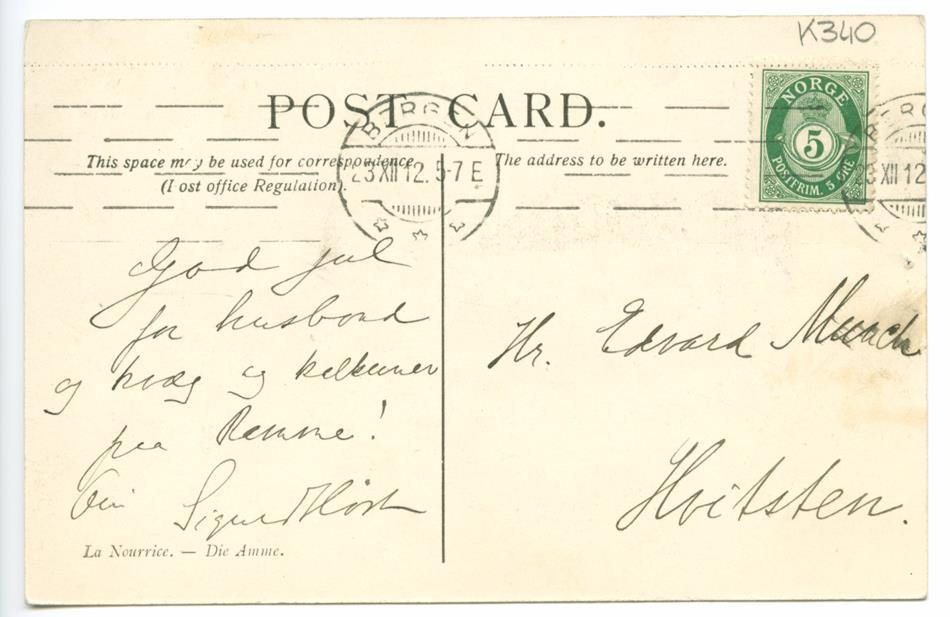 K340
POST CARD.
NORGE
5
POSTFRIM. 5 ØRE
BERGEN
23 XII 12. 5-7 E
BERG
23 XII 12
This space may be used for correspondence
(Post office Regulation).
The address to be written here.
God jul
for husbond
og kvæg og kalkuner
paa Ramme!
Din Sigurd Høst
La Nourrice. — Die Amme.
Hr. Edvard Munch
Hvitsten.